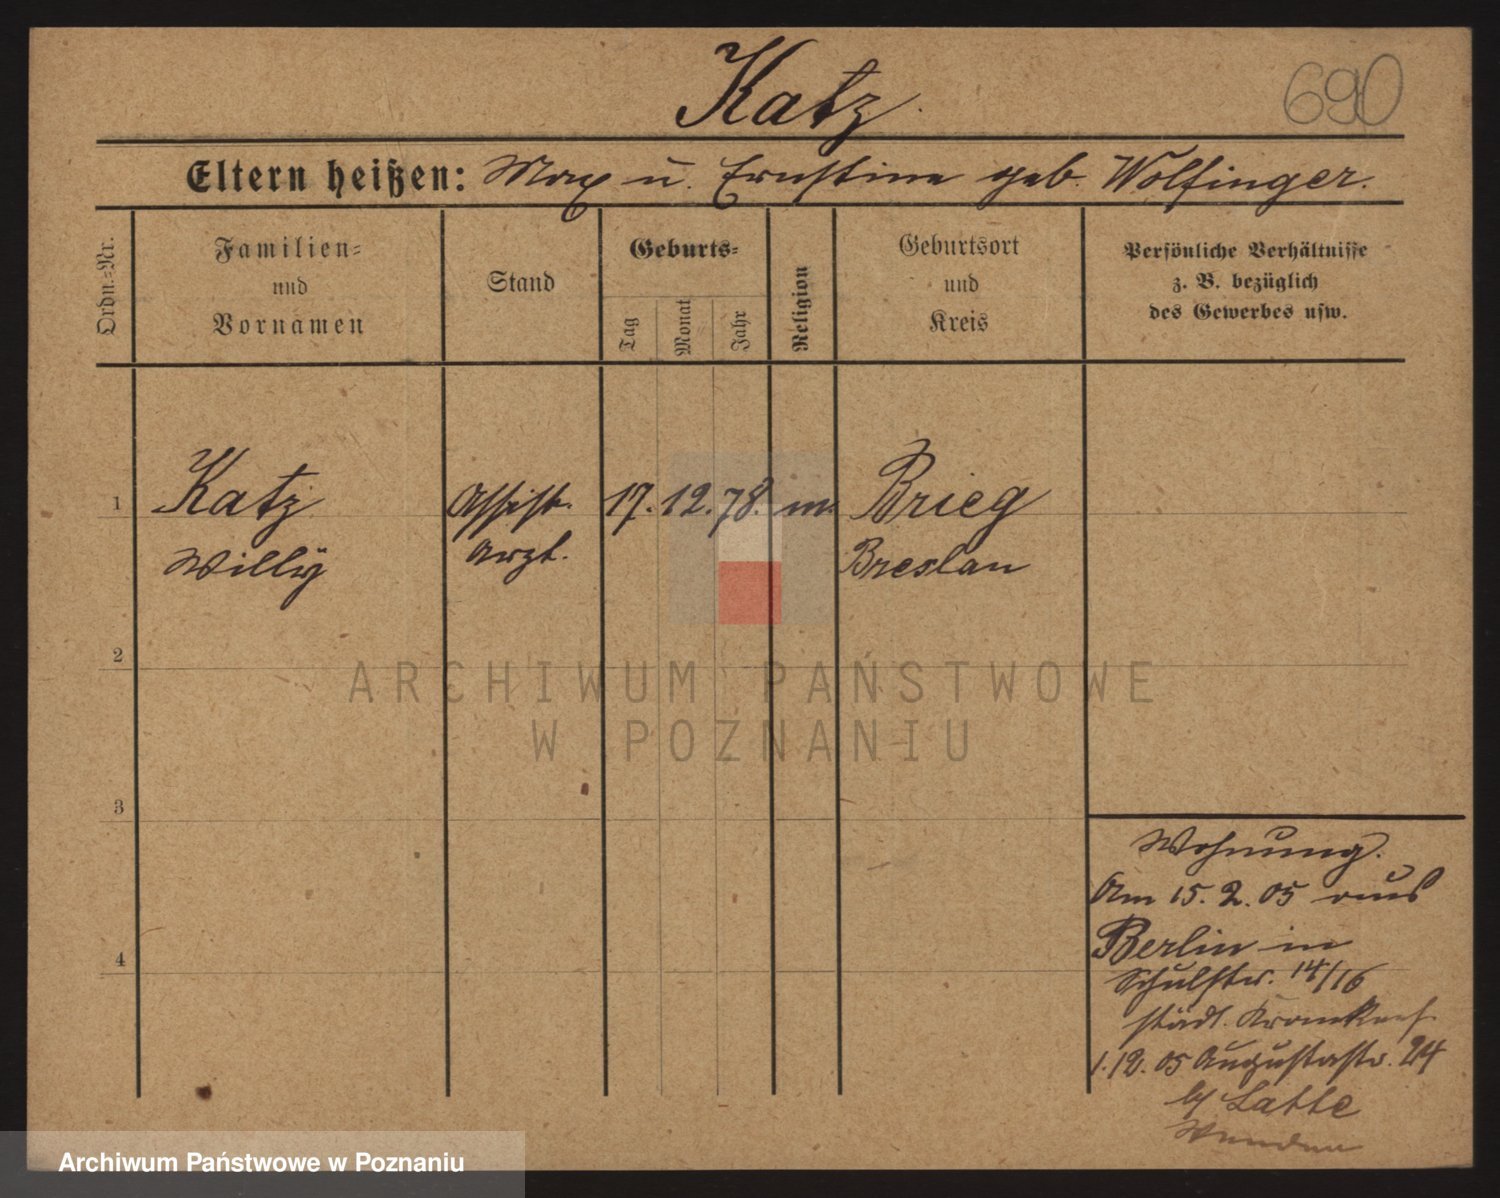 Katz
690
Eltern heißen: Max u. Ernstine geb. Wolfinger.
Ordn.-Nr.
Familien-
und
Vornamen
Stand
Geburts-
Tag
Monat
Jahr
Religion
Geburtsort
und
Kreis
Persönliche Verhältnisse
z. B. bezüglich
des Gewerbes usw.
1
Katz
Willÿ
Assist.
Arzt.
17. 12. 78. m.
Brieg
Breslau
2
ARCHIWUM PAŃSTWOWE
W POZNANIU
3
4
Wohnung.
Am 15. 2. 05 aus
Berlin in
Schulstr. 14/16
städt. Krankenh.
1. 12. 05 Augustastr. 24
Latte
Archiwum Państwowe w Poznaniu